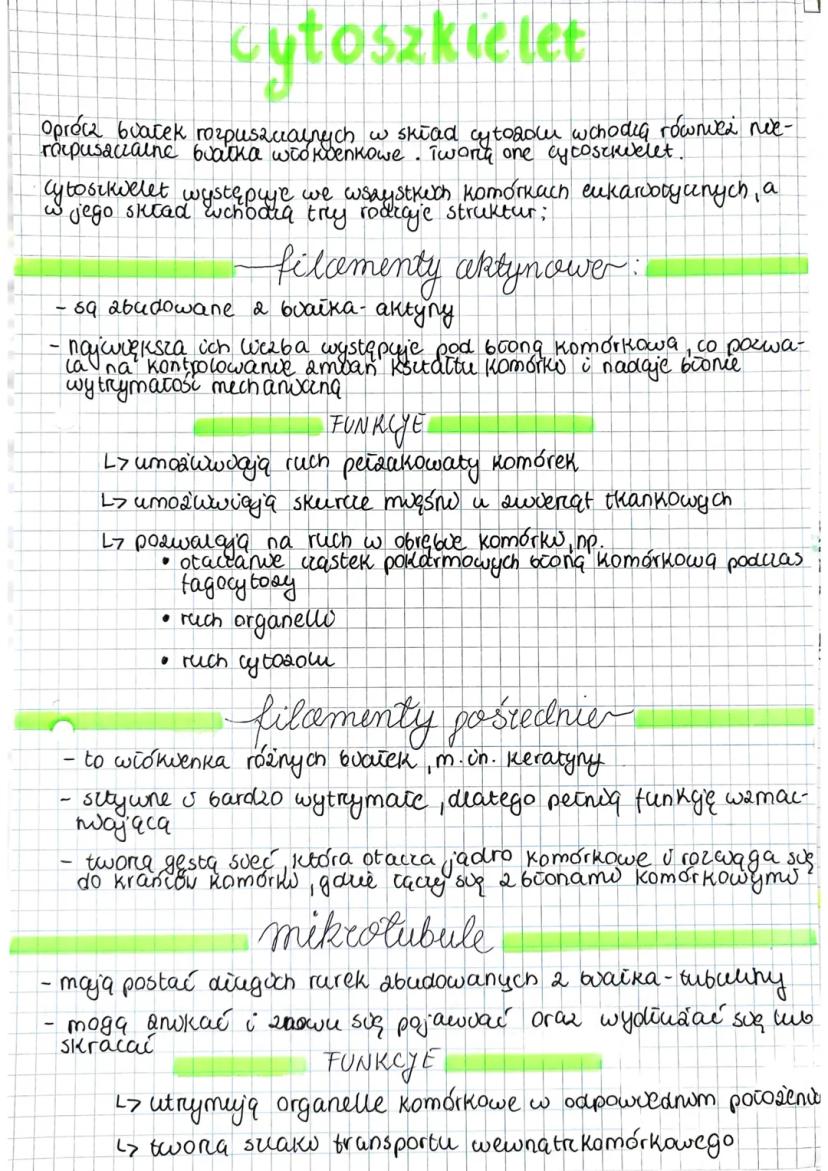 cytoszkielet
Oprócz białek rozpuszczalnych w skład cytozolu wchodzą również nie-
rozpuszczalne białka włókienkowe. Tworzą one cytoszkielet.
Cytoszkielet występuje we wszystkich komórkach eukariotycznych, a
w jego skład wchodzą trzy rodzaje struktur:
filamenty aktynowe:
- są zbudowane z białka - aktyny
- największa ich liczba występuje pod błoną komórkową, co pozwa-
la na kontrolowanie zmian kształtu komórki i nadaje błonie
wytrzymałość mechaniczną
FUNKCJE
↳ umożliwiają ruch pełzakowaty komórek
↳ umożliwiają skurcze mięśni u zwierząt tkankowych
↳ pozwalają na ruch w obrębie komórki, np.
• otaczanie cząstek pokarmowych błoną komórkową podczas
fagocytozy
• ruch organelli
• ruch cytozolu
filamenty pośrednie
- to włókienka różnych białek, m.in. keratyny
- sztywne i bardzo wytrzymałe, dlatego pełnią funkcję wzmac-
niającą
- tworzą gęstą sieć, która otacza jądro komórkowe i rozciąga się
do krańców komórki, gdzie łączy się z błonami komórkowymi
mikrotubule
- mają postać długich rurek zbudowanych z białka - tubuliny
- mogą znikać i znowu się pojawiać oraz wydłużać się lub
skracać
FUNKCJE
↳ utrzymują organelle komórkowe w odpowiednim położeniu
↳ tworzą szlaki transportu wewnątrzkomórkowego